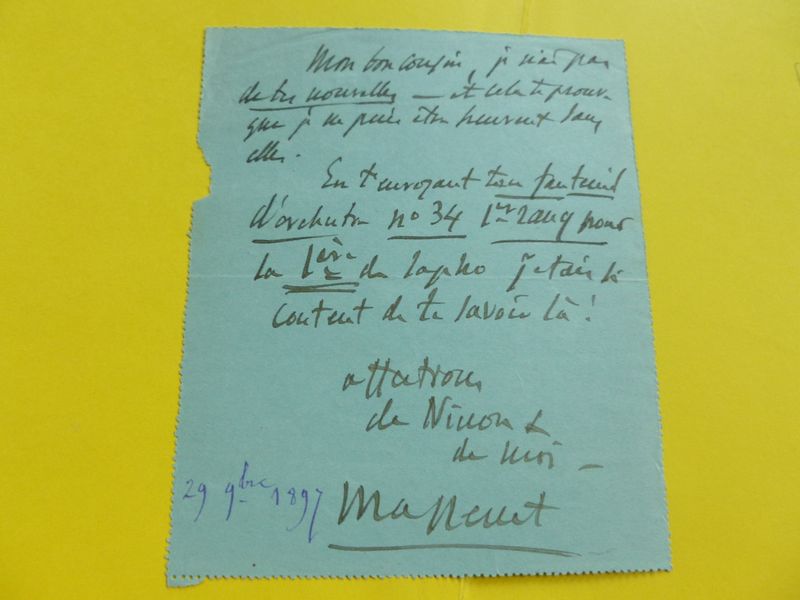 Mon bon cousin, je n'ai pas
de tes nouvelles — et cela te prouve
que je ne puis être heureux sans
elles.
En t'envoyant ton fauteuil
d'orchestre no 34 1er rang pour
la 1ère de Sapho j'étais si
content de te savoir là !
affections
de Ninon &
de moi —
29 9bre 1897
Massenet